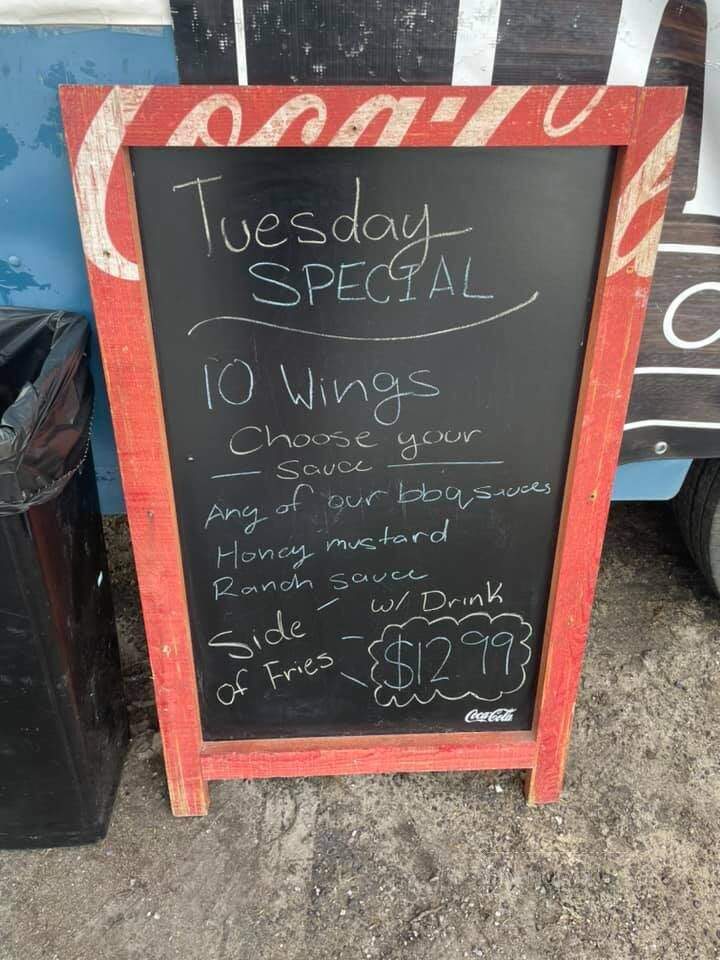 Coca-Cola
Tuesday
SPECIAL
10 Wings
Choose your
Sauce
Any of our bbq sauces
Honey mustard
Ranch sauce
w/ Drink
Side
of Fries
$12.99
Coca-Cola